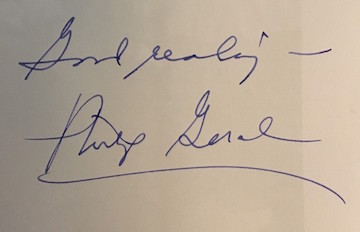 Good reading —
Philip Gerard